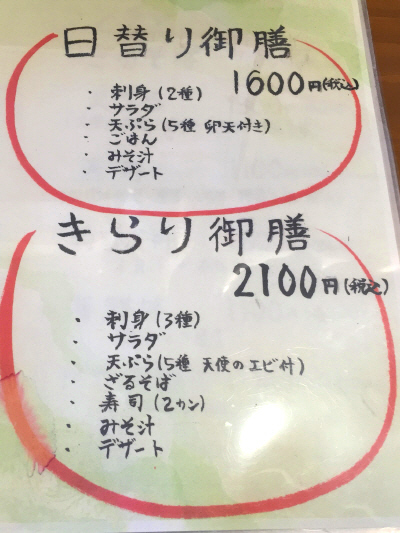 日替り御膳
1600円(税込)
・刺身(2種)
・サラダ
・天ぷら(5種 卵天付き)
・ごはん
・みそ汁
・デザート
きらり御膳
2100円(税込)
・刺身(3種)
・サラダ
・天ぷら(5種 天使のエビ付)
・ざるそば
・寿司(2カン)
・みそ汁
・デザート